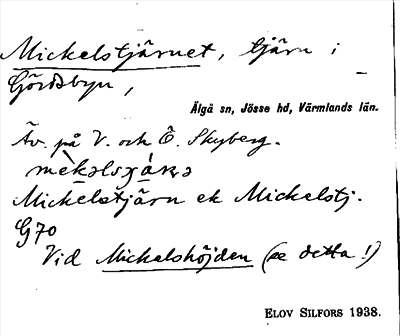 Mickelstjärnet, tjärn i
Gördsbyn,
Älgå sn, Jösse hd, Värmlands län.
Äv. på V. och Ö. Skyberg.
Mickelstjärn ek Mickelstj.
G70
Vid Mickelshöjden (se detta!)
ELOV SILFORS 1938.